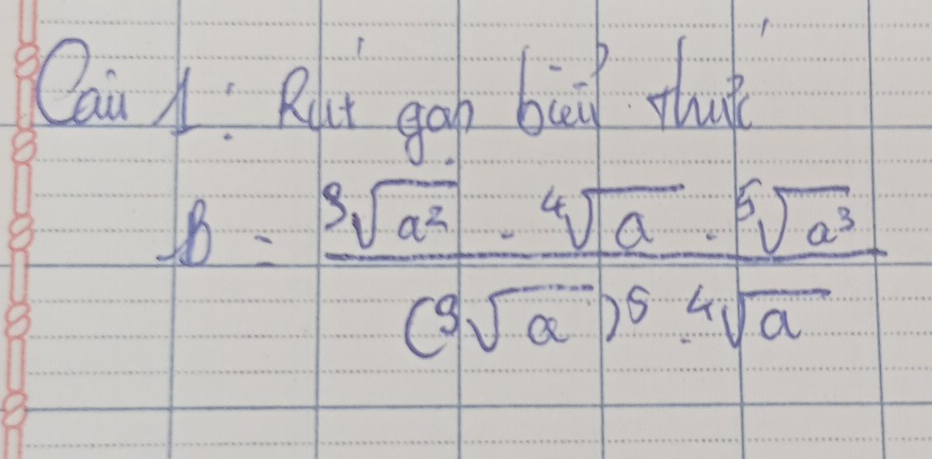 Câu 1: Rút gọn biểu thức
B = \frac{\sqrt[3]{a^2} \cdot \sqrt[4]{a} \cdot \sqrt[5]{a^3}}{(\sqrt[3]{a})^5 \cdot \sqrt[4]{a}}